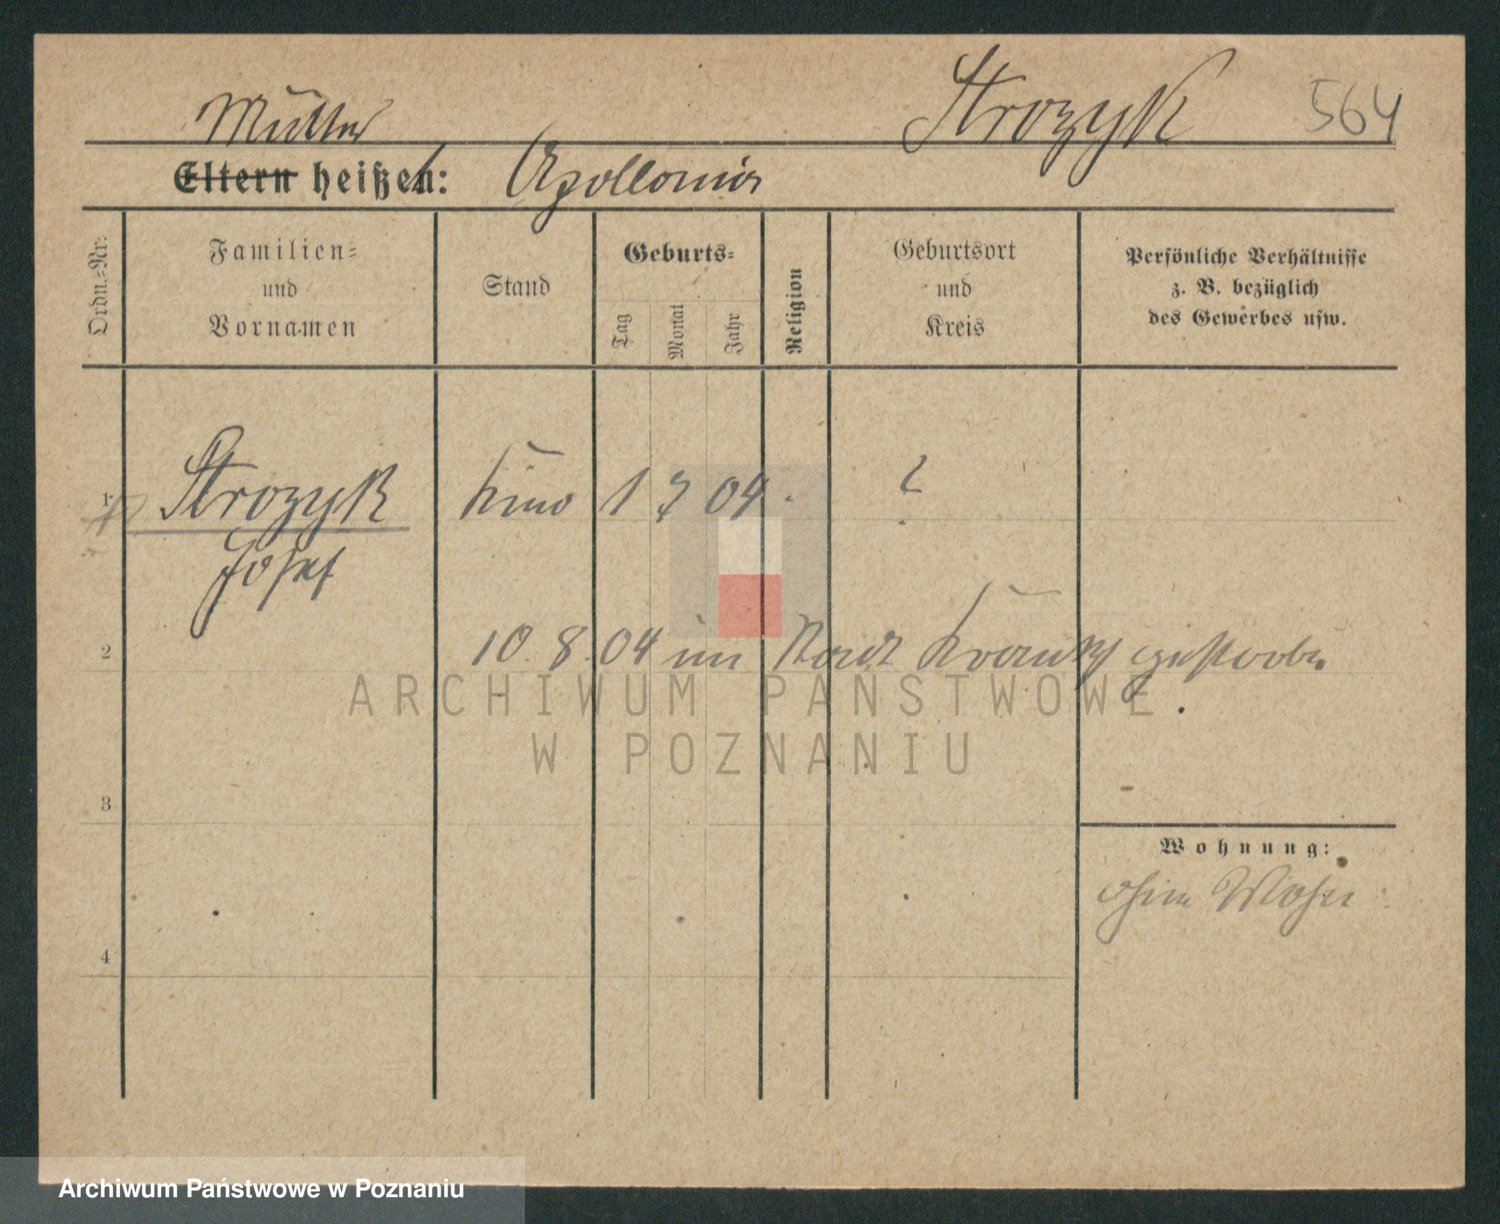 Strozyk 564
Mutter
Eltern heißen: Apollonia
Ordn.=Nr.
Familien=
und
Vornamen
Stand
Geburts=
Tag
Monat
Jahr
Religion
Geburtsort
und
Kreis
Persönliche Verhältnisse
z. B. bezüglich
des Gewerbes usw.
1 Strozyk Kind 1 7 04. ?
Josef
2 10. 8. 04 im Stadt Krankh gestorben
ARCHIWUM PAŃSTWOWE
W POZNANIU
3
Wohnung:
ohne
4
Archiwum Państwowe w Poznaniu